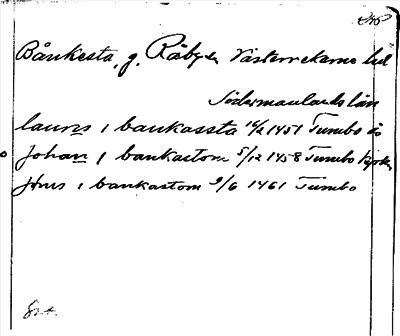 Bånkesta, g. Räbysn Västerrekarne hd
Södermanlands län
laurus i bankassta 16/2 1451 Tumbo
Johan i bankastom 5/12 1458 Tumbo
Jöns i bankastom 9/6 1461 Tumbo